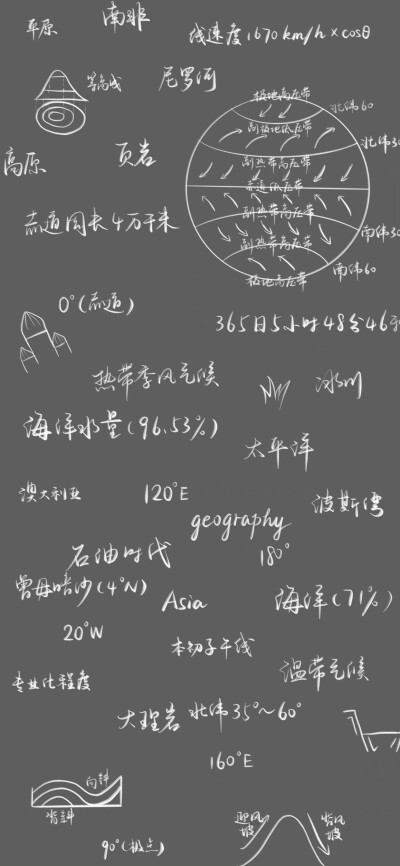 平原
南非
线速度1670km/h×cosθ
等高线
尼罗河
极地高压带
北纬60
副极地低压带
北纬30
副热带高压带
赤道低压带
高原
页岩
赤道周长4万千米
副热带高压带
南纬30
副热带高压带
南纬60
极地高压带
0°(赤道)
365日5小时48分46秒
热带季风气候
冰川
海洋水量(96.53%)
太平洋
澳大利亚
120°E
波斯湾
geography
石油时代
180°
曾母暗沙(4°N)
Asia
海洋(71%)
20°W
本初子午线
温带气候
专业化程度
大理岩
北纬35°~60°
160°E
向斜
背斜
迎风坡
背风坡
90°(极点)